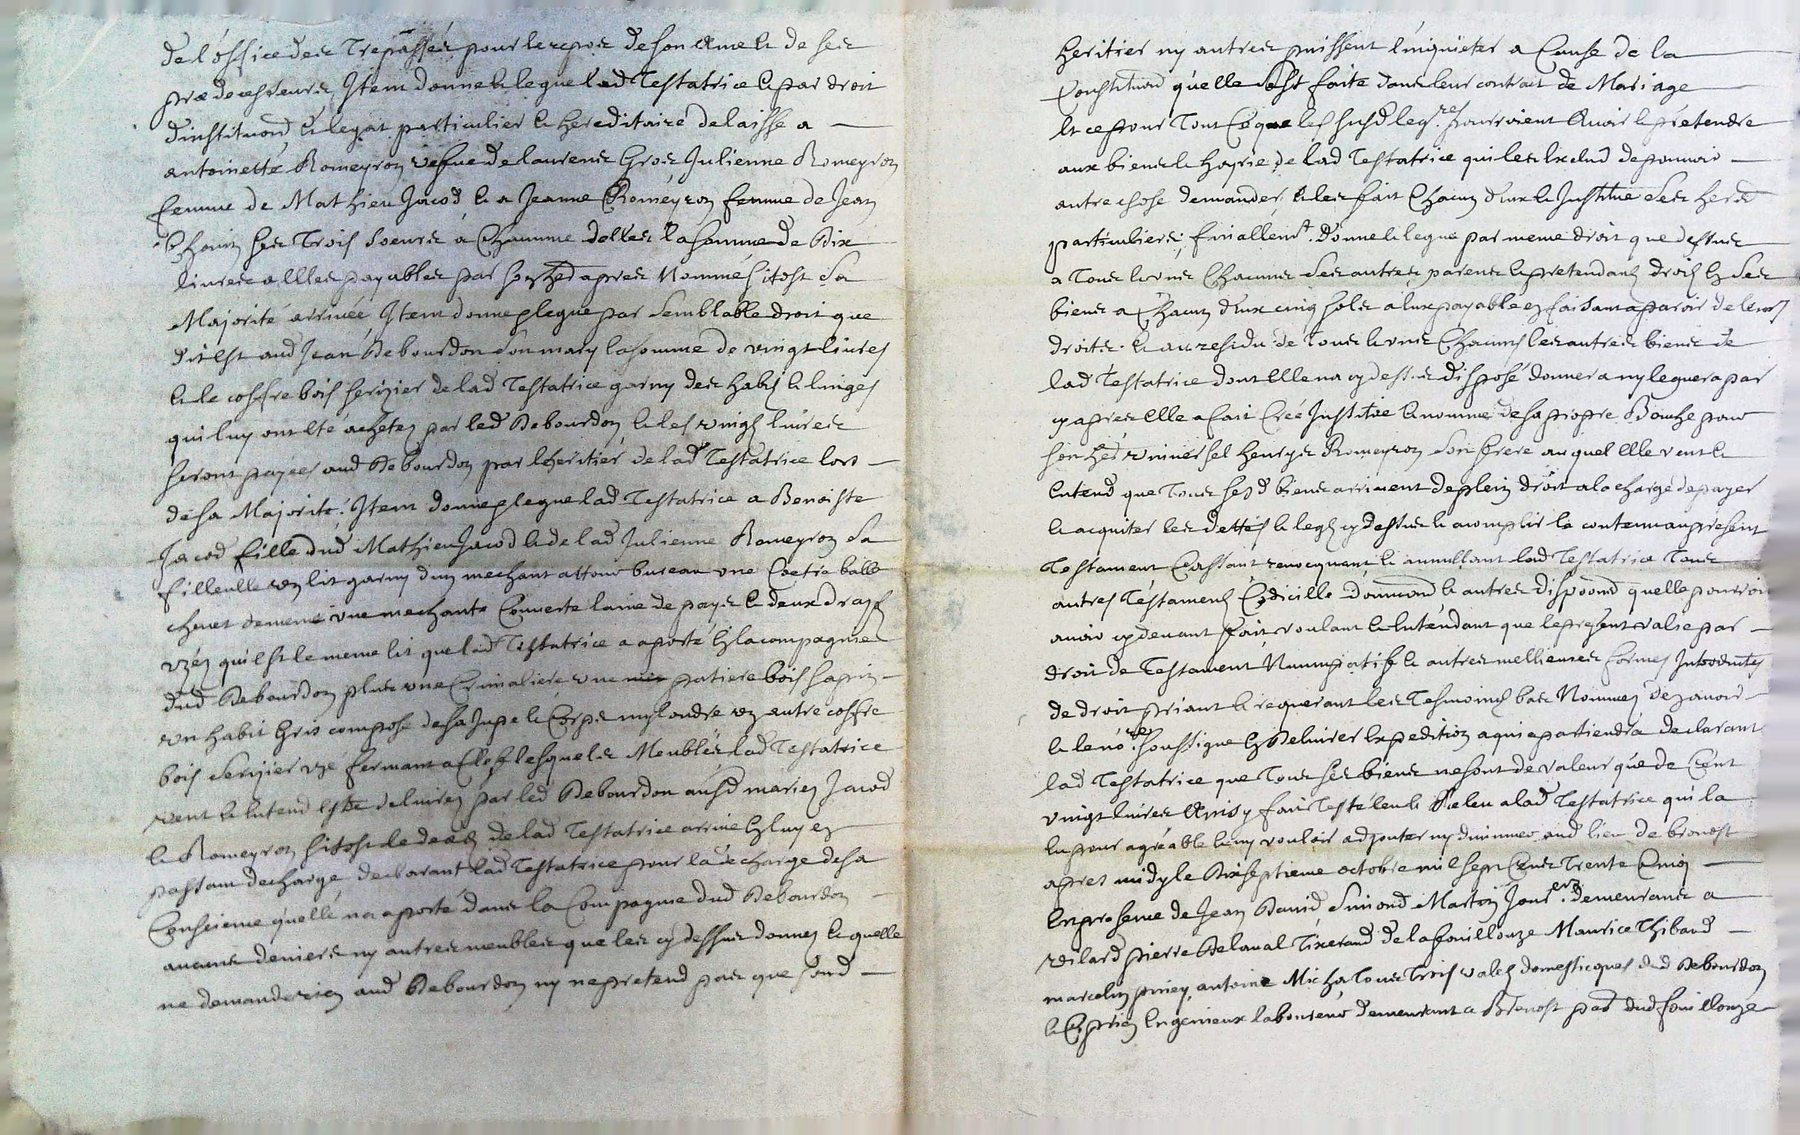 de l'office des Trepassés pour le repos de son ame & de ses
prædecesseurs, Item donne & legue lad Testatrice & par droit
d'instituõn & legat particulier & hereditaire delaisse a
antoinette Romeyron vefue de laurens Gros Julienne Romeyron
femme de Mathieu Jacod & a Jeanne Romeyron femme de Jean
ses Trois soeurs a Chacune delles la somme de Dix
liures a Elles payables par sond hed apres Nommé sitost Sa
Majorité arriuée, Item donne & legue par Semblable droit que
dit Est aud Jean Debourdon Son mary la somme de vingt liures
& le coffre bois serizier de lad Testatrice garny des habis & linges
qui luy ont Eté achetez par led Debourdon & les vingt liures
seront payees aud Debourdon par lheritier de lad Testatrice lors
de sa Majorité. Item donne & legue lad Testatrice a Benoiste
Jacod fille dud Mathieu Jacod & de lad Julienne Romeyron Sa
filleulle un lit garny d'un mechant attour bureau une balle
une mechante Couuerte laine de pays & deux draps
uzéz qui Est le meme lit que lad Testatrice a aporté En la compagnie
dud Debourdon plus une Crimaliere une patiere bois sapin
un habit Gris composé de sa Jupe & Corps un autre coffre
bois Serizier uzé fermant a Clef lesquels Meubles lad Testatrice
veut & Entend Estre deliurez par led Debourdon ausd mariez Jacod
& Romeyron sitost le deces de lad Testatrice arriué En luy en
passant decharge declarant lad Testatrice pour la decharge de sa
Consciense quelle na aporté dans la Compagnie dud Debourdon
aucuns deniers ny autres meubles que les cy dessus donnez & quelle
ne demande rien aud Debourdon ny ne pretend pas que sond
heritier ny autres puissent l'inquieter a Cause de la
Constituõn qu'elle sest faite dans leur contrait de Mariage
Et ce pour Tout Ce que les susd legres pourroient auoir & pretendre
aux biens & hoyrie de lad Testatrice qui les Exclud de pouuoir
autre chose demander & les fait Chacun d'Eux & Institue Ses hers
particuliers; finallemt. Donne & legue par meme droit que dessus
a Tous & uns Chacuns Ses autres parens & pretendans droits En Ses
biens a Chacun d'Eux cinq sols a Eux payable en faisant aparoir de leurs
droits. & au residu de Tous & uns Chacuns les autres biens de
lad Testatrice dont Elle na cy dessus disposé donné ny leguera par
cy apres Elle a fait Créé Institué & nommé de sa propre Bouche pour
son hed vniuersel Henrys Romeyron Son frere auquel Elle veut &
Entend que Tous sesd biens arriuent de plein droit a la charge de payer
& acquiter les dettes & legs cy dessus & accomplir le contenu au present
Testament Cassant reuocquant & annullant lad Testatrice Tous
autres Testamens Codicille Donnaõn & autres dispoõns quelle pourroit
auoir cy deuant fait voulant & Entendant que le present vale par
droit de Testament Nuncupatif & autres mellieures formes Introduites
de droit priant & requerant les Tesmoins bas Nommez dez auoir
& le nore. soussigné En Deliurer Expedition a qui apartiendra declarant
lad Testatrice que Tous ses biens ne sont de valeur que de Cent
vingt liures Ainsy fait Testé leu & Releu a lad Testatrice qui la
Eu pour agréable & ny vouloir adjouter ny diminuer aud lieu de brenost
apres midy le Dixseptieme octobre mil sept Cens Trente Cinq
En presence de Jean Dauid Simond Martin Jourers. demeurants a
vilard pierre Delaual Tixerand de la fouillouze Maurice Thibaud
marcelin piney, antoine Micha Tous Trois valets domesticques dud Debourdon
& Ciprien Engenieux laboureur demeurant a Brenost psse dud fouillouze